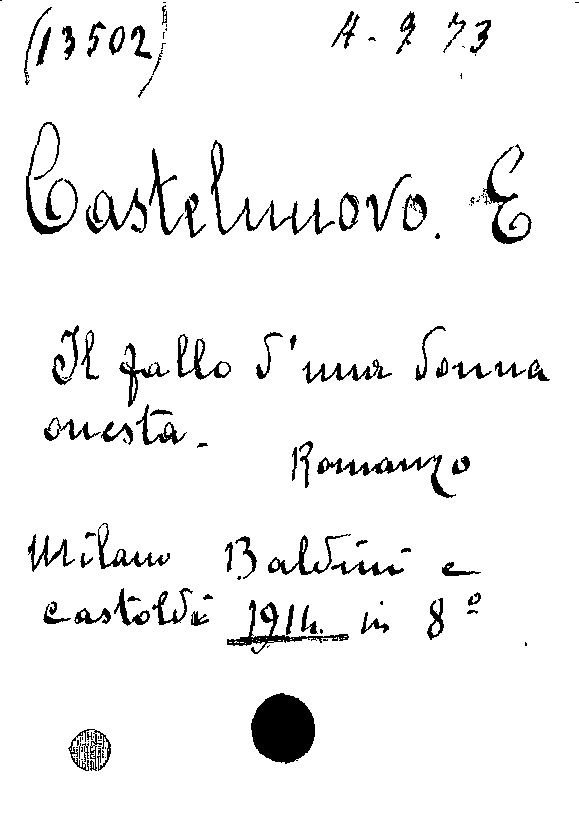 (13502) A. 9 73
Castelnuovo. E
Il fallo d'una donna
onesta.
Romanzo
Milano Baldini e
Castoldi 1914. in 8º